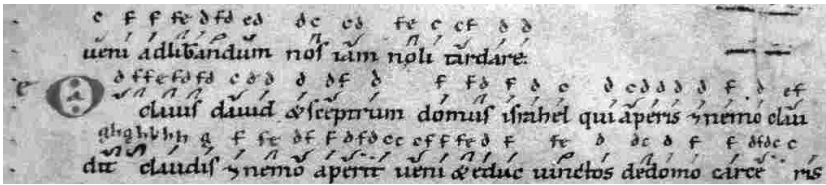 c f f fe d fd ed dc cd fe c cf d d
ueni adliberandum nos iam noli tardare.
d f f e f d f d c d d d d f d f f d f d c d c d d d d f d ef
O clauis dauid & sceptrum domus israhel qui aperis & nemo clau
g h g h h h g f f e d f f d f d c c e f f f e d f f e d d c d f f d f d c c
dit claudis & nemo aperit ueni & educ uinctos dedomo carce ris